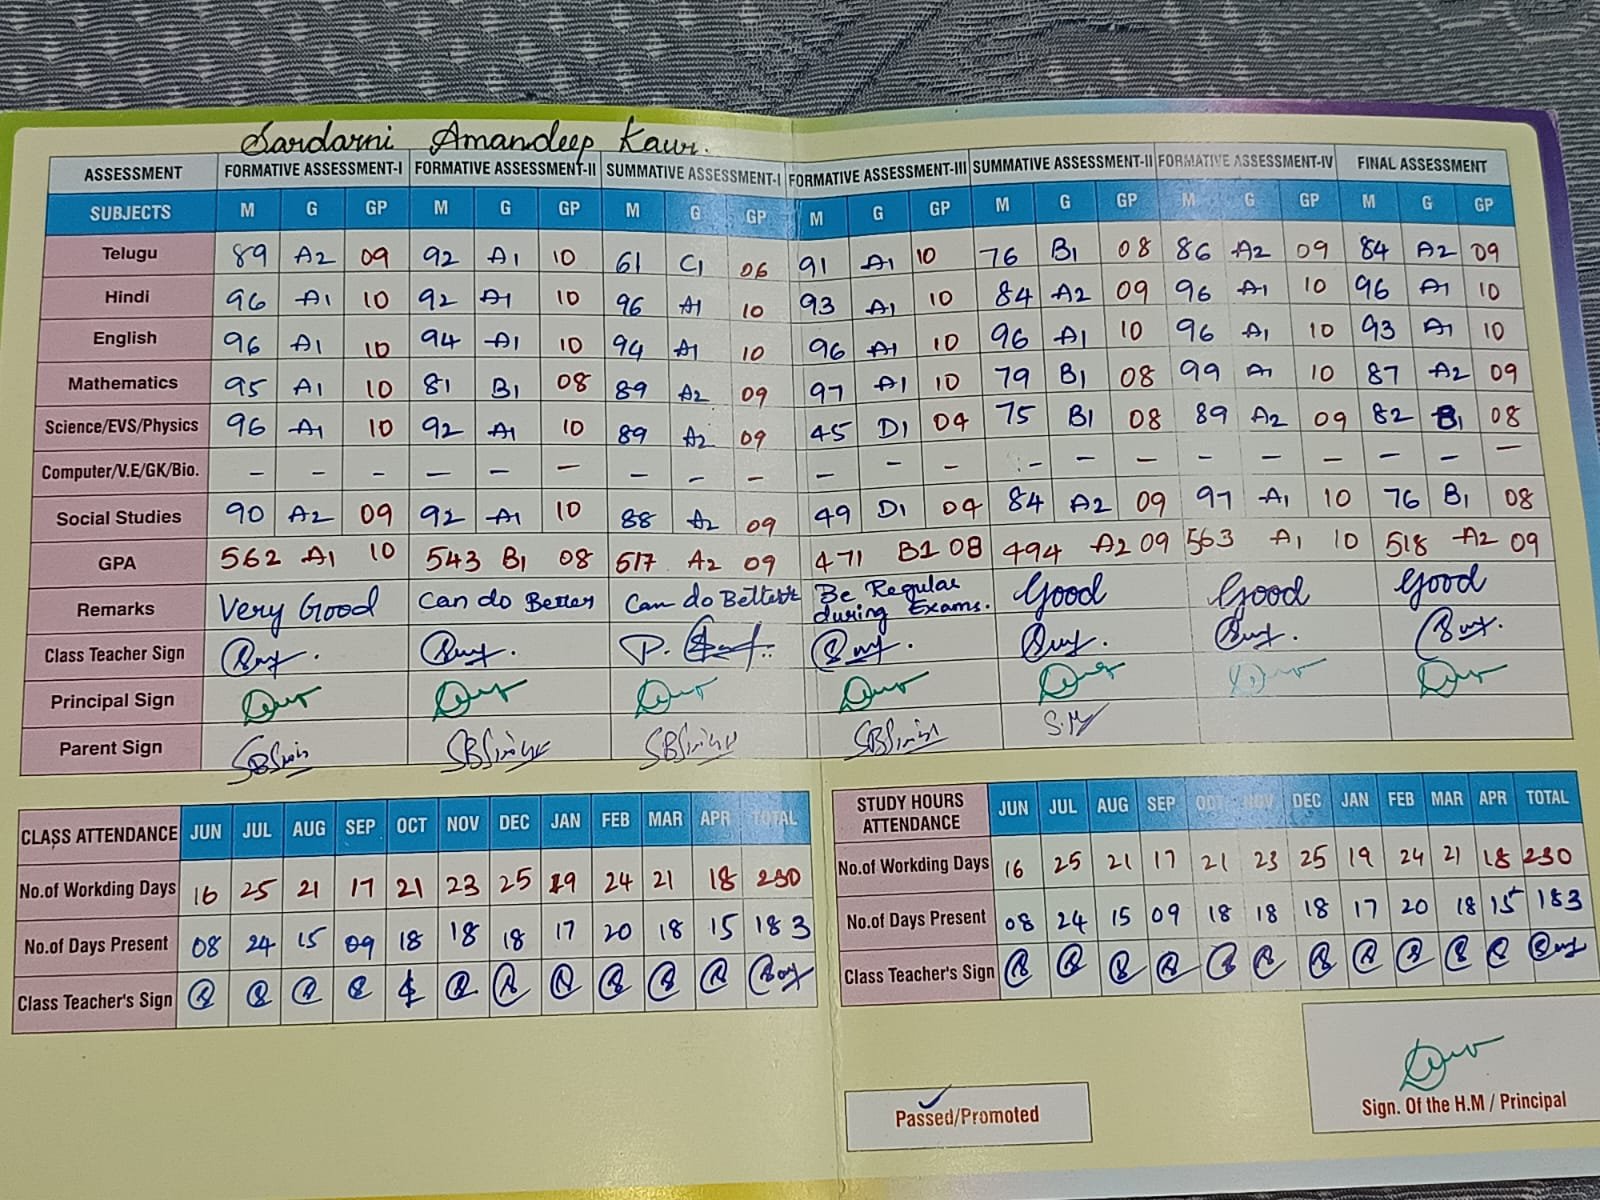 Sardarni Amandeep Kaur.
ASSESSMENT FORMATIVE ASSESSMENT-I FORMATIVE ASSESSMENT-II SUMMATIVE ASSESSMENT-I FORMATIVE ASSESSMENT-III SUMMATIVE ASSESSMENT-II FORMATIVE ASSESSMENT-IV FINAL ASSESSMENT
SUBJECTS M G GP M G GP M G GP M G GP M G GP M G GP M G GP
Telugu 89 A2 09 92 A1 10 61 C1 06 91 A1 10 76 B1 08 86 A2 09 84 A2 09
Hindi 96 A1 10 92 A1 10 96 A1 10 93 A1 10 84 A2 09 96 A1 10 96 A1 10
English 96 A1 10 94 A1 10 94 A1 10 96 A1 10 96 A1 10 96 A1 10 93 A1 10
Mathematics 95 A1 10 81 B1 08 89 A2 09 97 A1 10 79 B1 08 99 A1 10 87 A2 09
Science/EVS/Physics 96 A1 10 92 A1 10 89 A2 09 45 D1 04 75 B1 08 89 A2 09 82 B1 08
Computer/V.E/GK/Bio. - - - - - - - - - - - - - - - - - - - - -
Social Studies 90 A2 09 92 A1 10 88 A2 09 49 D1 04 84 A2 09 97 A1 10 76 B1 08
GPA 562 A1 10 543 B1 08 517 A2 09 471 B1 08 494 A2 09 563 A1 10 518 A2 09
Remarks Very Good Can do Better Can do Better Be Regular during Exams. Good Good Good
Class Teacher Sign
Principal Sign
Parent Sign
CLASS ATTENDANCE JUN JUL AUG SEP OCT NOV DEC JAN FEB MAR APR TOTAL
No.of Workding Days 16 25 21 17 21 23 25 19 24 21 18 230
No.of Days Present 08 24 15 09 18 18 18 17 20 18 15 183
Class Teacher's Sign
STUDY HOURS ATTENDANCE JUN JUL AUG SEP OCT NOV DEC JAN FEB MAR APR TOTAL
No.of Workding Days 16 25 21 17 21 23 25 19 24 21 18 230
No.of Days Present 08 24 15 09 18 18 18 17 20 18 15 183
Class Teacher's Sign
Passed/Promoted
Sign. Of the H.M / Principal